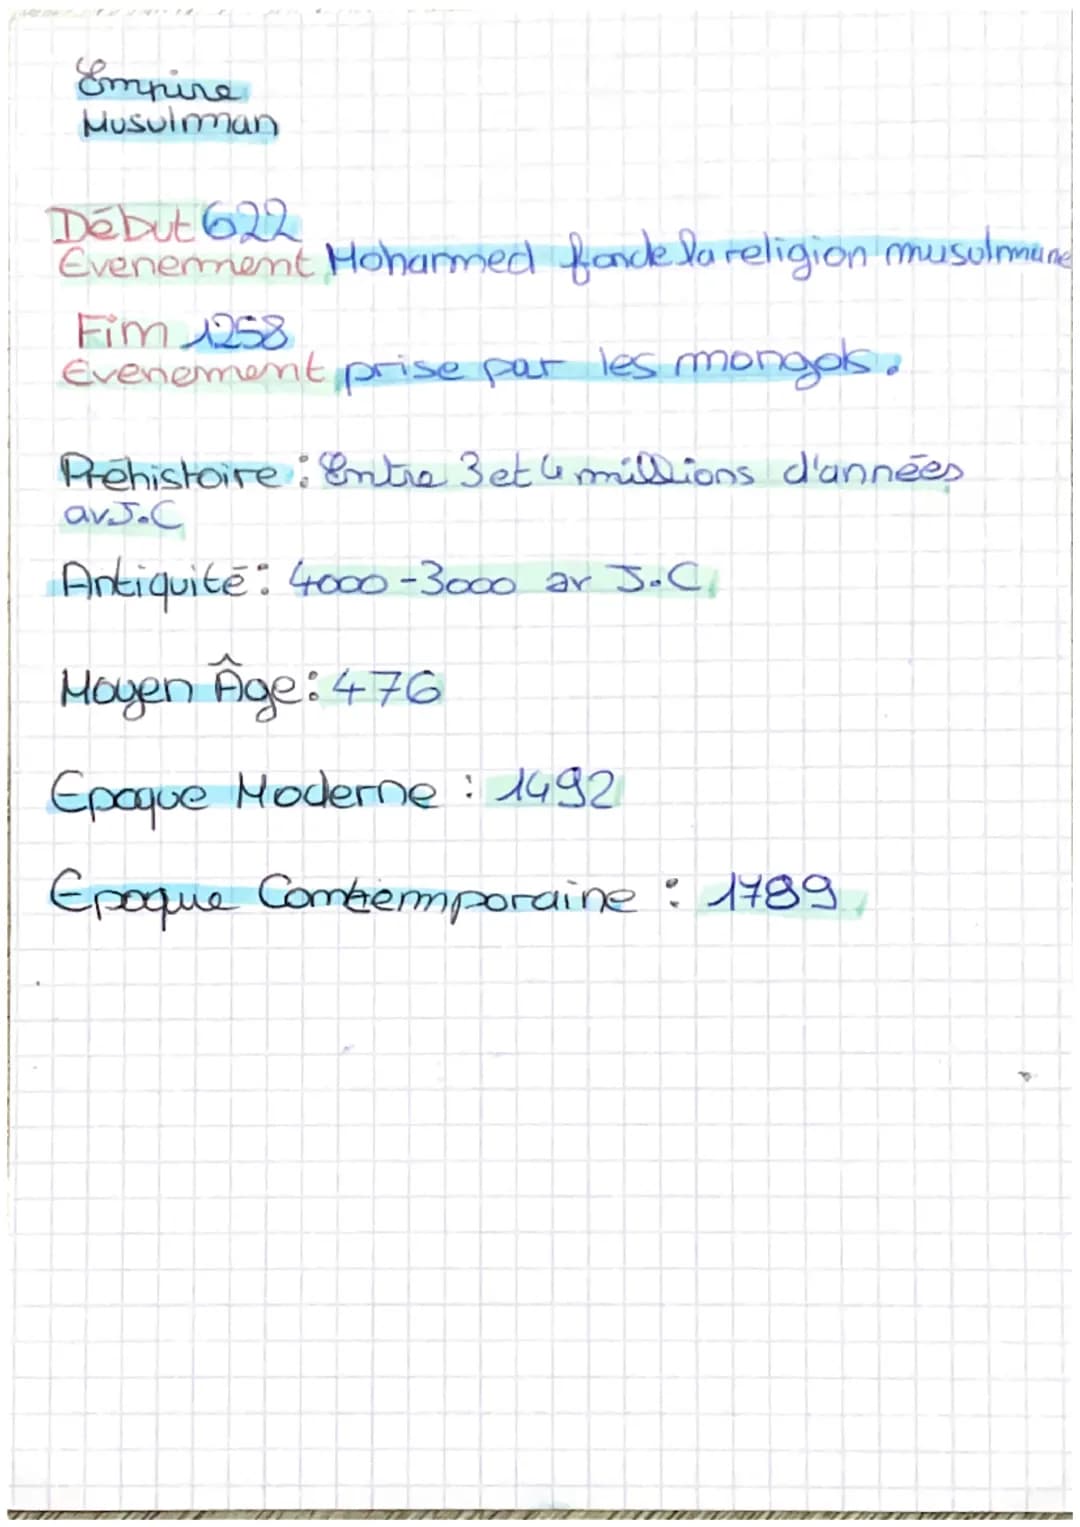 Empire
Musulman
Début 622
Evenement Mohammed fonde la religion musulmane
Fin 1258
Evenement prise par les mongols.
Préhistoire : Entre 3 et 4 millions d'années
av J.C
Antiquité : 4000 - 3000 av J.C
Moyen Âge : 476
Epoque Moderne : 1492
Epoque Contemporaine : 1789